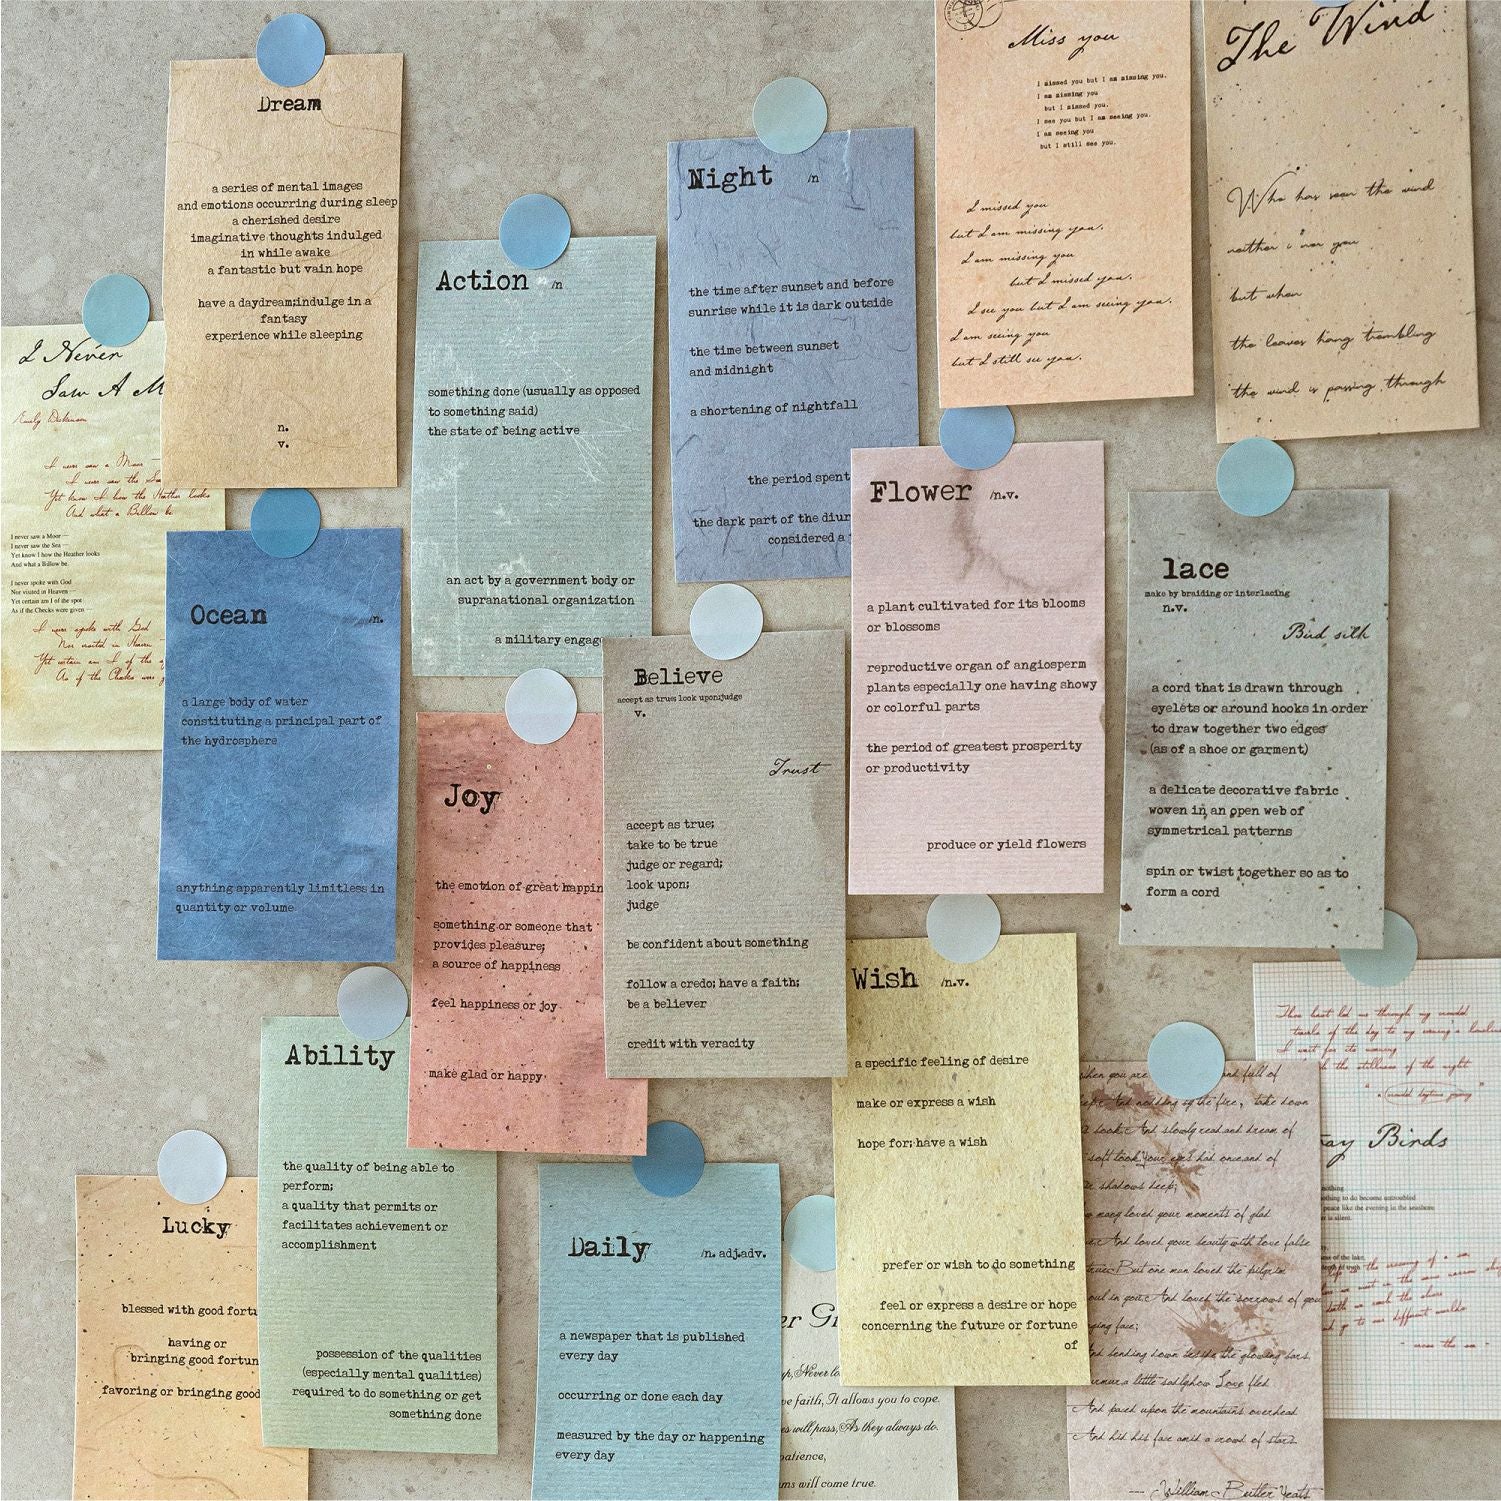 Dream
a series of mental images
and emotions occurring during sleep
a cherished desire
imaginative thoughts indulged
in while awake
a fantastic but vain hope
have a daydream;indulge in a
fantasy
experience while sleeping
n.
v.
Action /n
something done (usually as opposed
to something said)
the state of being active
an act by a government body or
supranational organization
a military engag
Night /n
the time after sunset and before
sunrise while it is dark outside
the time between sunset
and midnight
a shortening of nightfall
the period spent
the dark part of the diur
considered a
Miss you
I missed you but I am missing you.
I am missing you
but I missed you.
I see you but I am seeing you.
I am seeing you
but I still see you.
I missed you
but I am missing you.
I am missing you
but I missed you.
I see you but I am seeing you.
I am seeing you
but I still see you.
The Wind
Who has seen the wind
neither i nor you
but when
the leaves hang trembling
the wind is passing through
I Never
Saw A M
Emily Dickinson
I never saw a Moor
I never saw the Sea
Yet know I how the Heather looks
And what a Billow be
I never saw a Moor —
I never saw the Sea —
Yet know I how the Heather looks
And what a Billow be.
I never spoke with God
Nor visited in Heaven —
Yet certain am I of the spot
As if the Checks were given —
I never spoke with God
Nor visited in Heaven
Yet certain am I of the
As if the Checks were
Ocean /n.
a large body of water
constituting a principal part of
the hydrosphere
anything apparently limitless in
quantity or volume
Flower /n.v.
a plant cultivated for its blooms
or blossoms
reproductive organ of angiosperm
plants especially one having showy
or colorful parts
the period of greatest prosperity
or productivity
produce or yield flowers
lace
make by braiding or interlacing
n.v.
Bird silk
a cord that is drawn through
eyelets or around hooks in order
to draw together two edges
(as of a shoe or garment)
a delicate decorative fabric
woven in an open web of
symmetrical patterns
spin or twist together so as to
form a cord
Believe
accept as true; look upon;judge
v.
Trust
accept as true;
take to be true
judge or regard;
look upon;
judge
be confident about something
follow a credo; have a faith;
be a believer
credit with veracity
Joy
the emotion of great happin
something or someone that
provides pleasure;
a source of happiness
feel happiness or joy
make glad or happy
Wish /n.v.
a specific feeling of desire
make or express a wish
hope for; have a wish
prefer or wish to do something
feel or express a desire or hope
concerning the future or fortune
of
Ability
the quality of being able to
perform;
a quality that permits or
facilitates achievement or
accomplishment
possession of the qualities
(especially mental qualities)
required to do something or get
something done
Lucky
blessed with good fortu
having or
bringing good fortun
favoring or bringing good
Daily /n. adj.adv.
a newspaper that is published
every day
occurring or done each day
measured by the day or happening
every day
er G
Never lo
ve faith, It allows you to cope.
es will pass, As they always do.
patience,
ms will come true.
when you are and full of
And nodding by the fire, take down
book And slowly read and dream of
soft look Your eyes had once and of
shadows deep;
many loved your moments of glad
And loved your beauty with love false
true But one man loved the pilgrim
soul in you And loved the sorrows of your
ging face;
And bending down beside the glowing bars
a little sadly how Love fled
And paced upon the mountains overhead
And hid his face amid a crowd of stars
— William Butler Yeats
Thou hast led me through my crowded
travels of the day to my evening's
I wait for its meaning
the stillness of the night
ay Birds
nothing
othing to do become untroubled
peace like the evening in the seashore
er is silent.
of the lake,
cross the sea